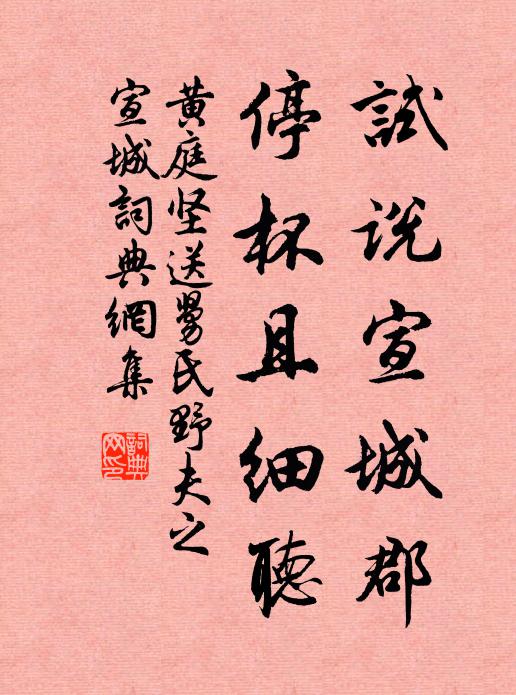 試説宣城郡
停杯且細聽
黄庭坚送舅氏野夫之
宣城詞典網集
詞典網印